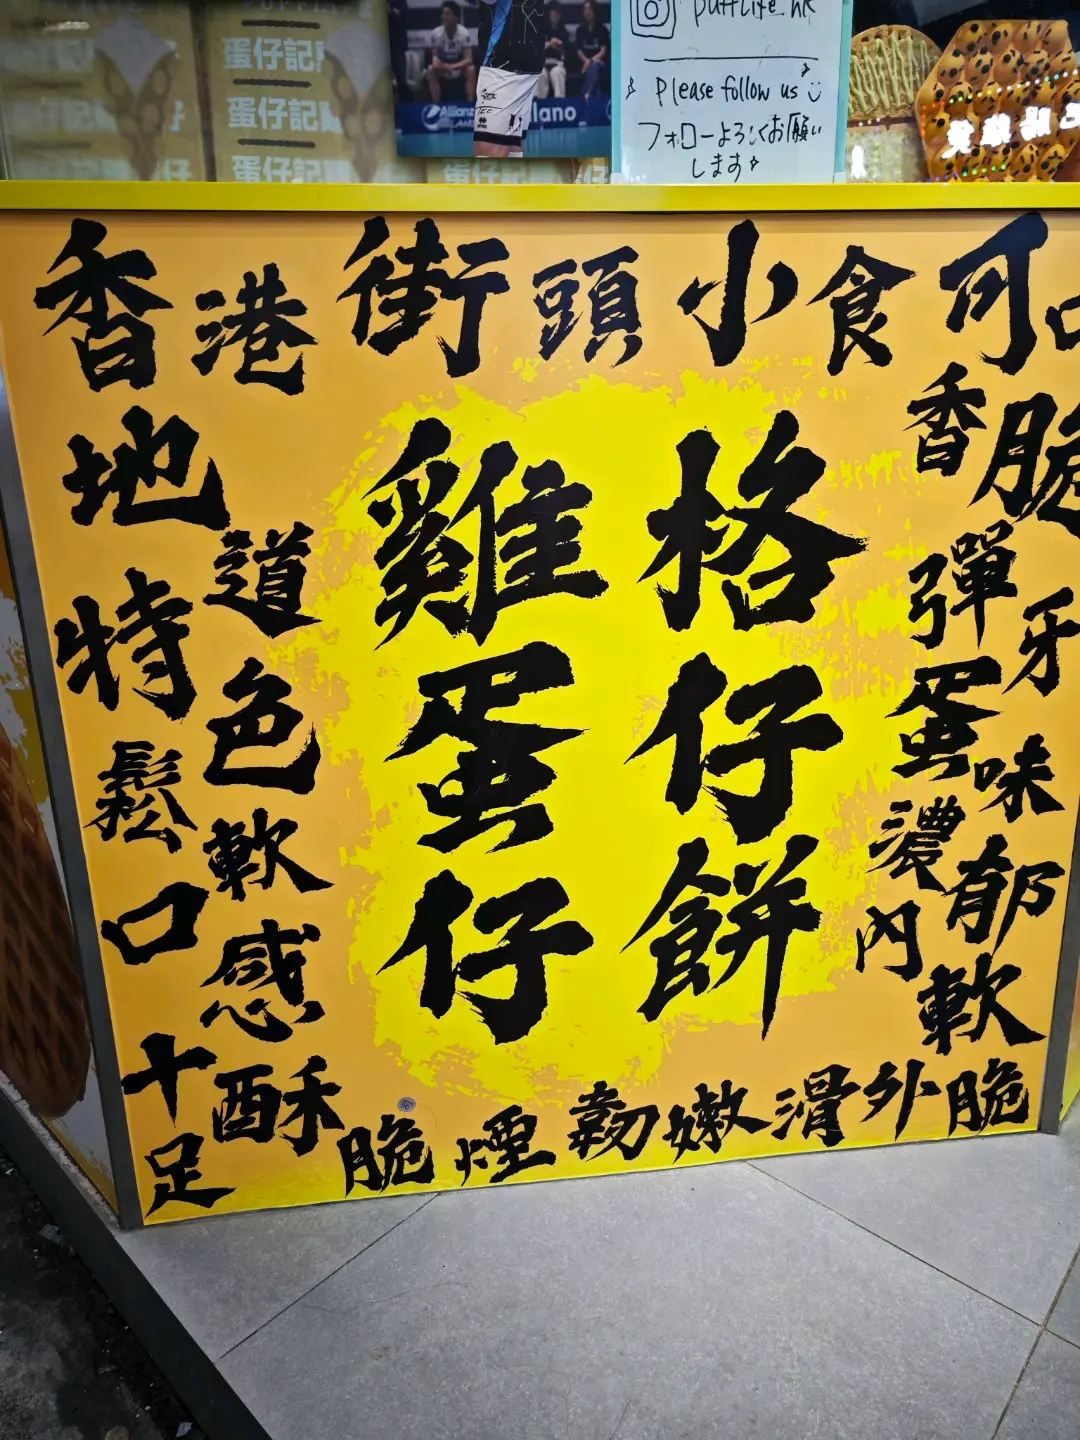 蛋仔記
蛋仔記
蛋仔記
蛋仔
蛋仔記
Allianz
Milano
pufflife_hk
Please follow us
フォローよろしくお願い
します
香港街頭小食可口
地道特色
鬆軟口感十足
雞蛋仔
格仔餅
香脆彈牙
蛋味濃郁
內軟外脆
酥脆煙韌嫩滑